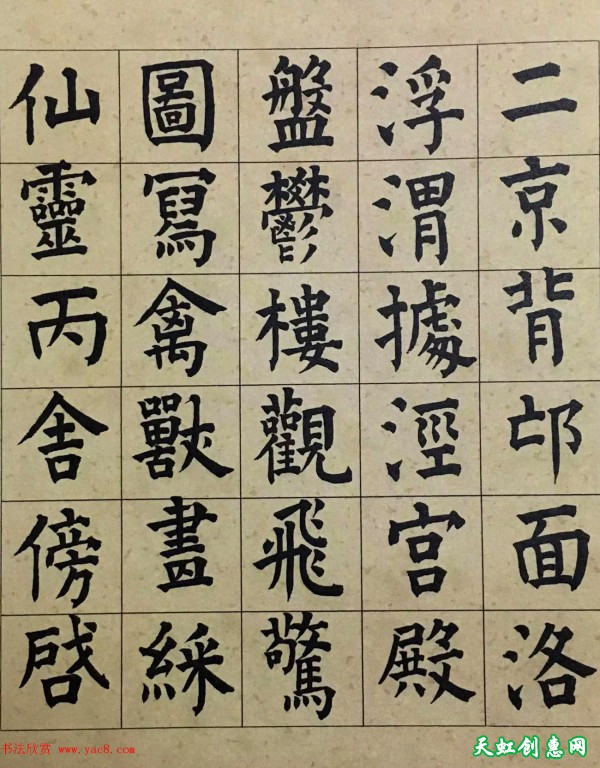 二京背邙面洛
浮渭據涇宮殿
盤鬱樓觀飛驚
圖寫禽獸畫綵
仙靈丙舍傍啓
书法欣赏 www.yac8.com
天虹创惠网